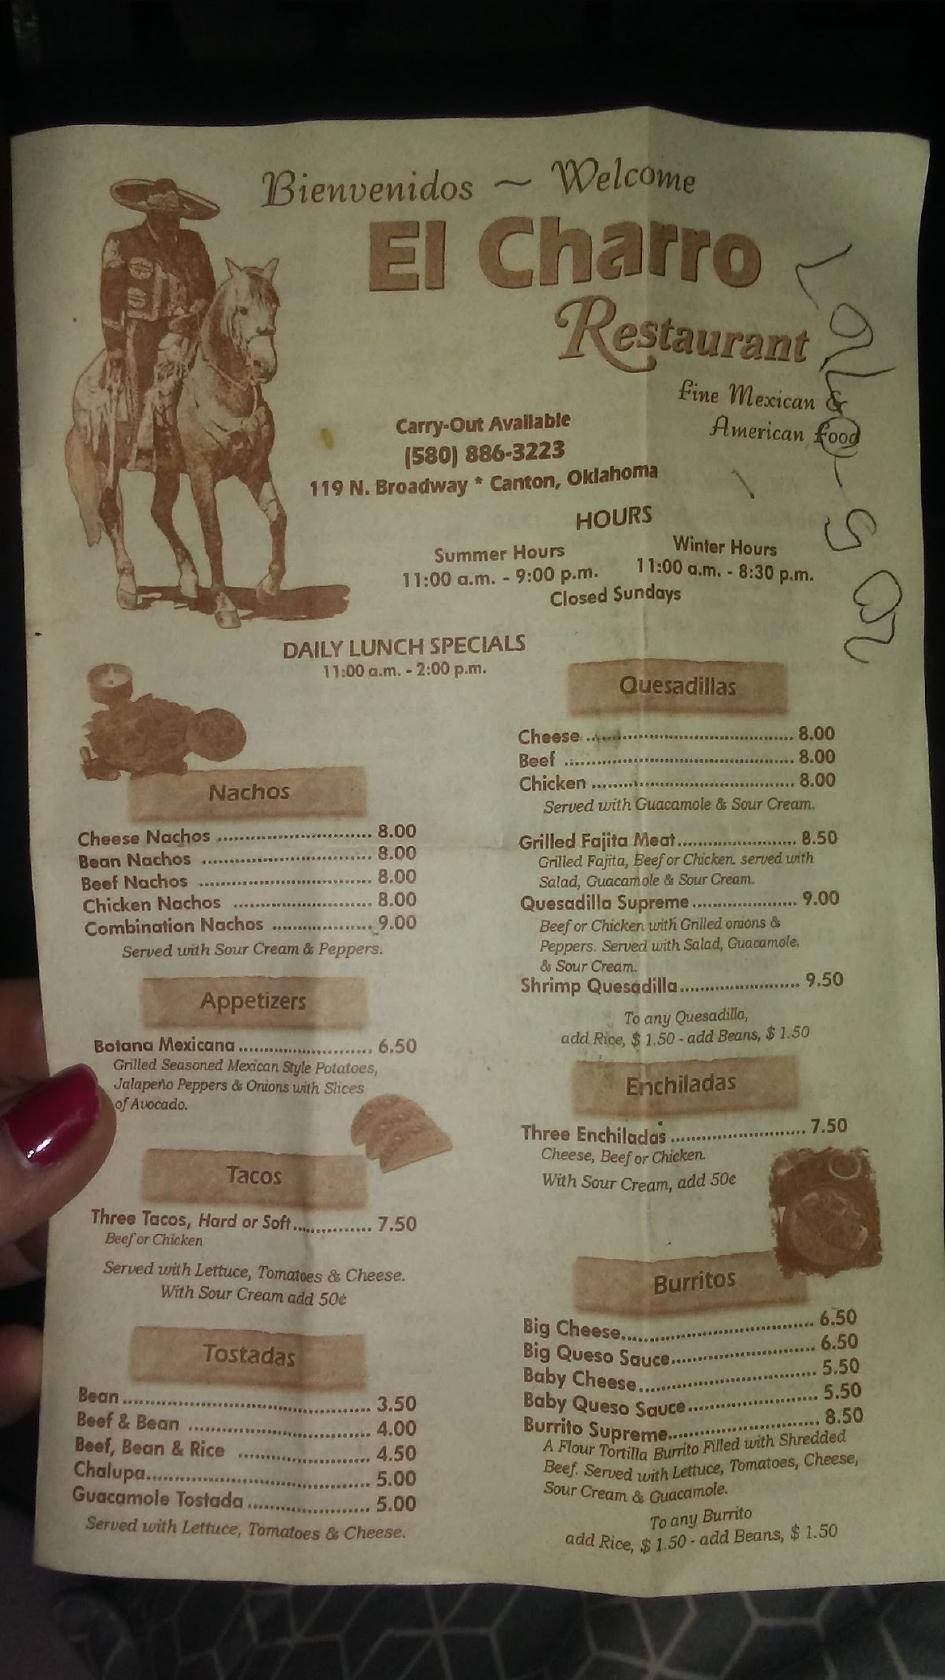 Bienvenidos ~ Welcome
El Charro
Restaurant
Fine Mexican &
American Food
Carry-Out Available
(580) 886-3223
119 N. Broadway * Canton, Oklahoma
HOURS
Summer Hours
11:00 a.m. - 9:00 p.m.
Winter Hours
11:00 a.m. - 8:30 p.m.
Closed Sundays
DAILY LUNCH SPECIALS
11:00 a.m. - 2:00 p.m.
Nachos
Cheese Nachos 8.00
Bean Nachos 8.00
Beef Nachos 8.00
Chicken Nachos 8.00
Combination Nachos 9.00
Served with Sour Cream & Peppers.
Appetizers
Botana Mexicana 6.50
Grilled Seasoned Mexican Style Potatoes,
Jalapeño Peppers & Onions with Slices
of Avocado.
Tacos
Three Tacos, Hard or Soft 7.50
Beef or Chicken
Served with Lettuce, Tomatoes & Cheese.
With Sour Cream add 50¢
Tostadas
Bean 3.50
Beef & Bean 4.00
Beef, Bean & Rice 4.50
Chalupa 5.00
Guacamole Tostada 5.00
Served with Lettuce, Tomatoes & Cheese.
Quesadillas
Cheese 8.00
Beef 8.00
Chicken 8.00
Served with Guacamole & Sour Cream.
Grilled Fajita Meat 8.50
Grilled Fajita, Beef or Chicken. served with
Salad, Guacamole & Sour Cream.
Quesadilla Supreme 9.00
Beef or Chicken with Grilled onions &
Peppers. Served with Salad, Guacamole,
& Sour Cream.
Shrimp Quesadilla 9.50
To any Quesadilla,
add Rice, $ 1.50 - add Beans, $ 1.50
Enchiladas
Three Enchiladas 7.50
Cheese, Beef or Chicken.
With Sour Cream, add 50¢
Burritos
Big Cheese 6.50
Big Queso Sauce 6.50
Baby Cheese 5.50
Baby Queso Sauce 5.50
Burrito Supreme 8.50
A Flour Tortilla Burrito Filled with Shredded
Beef. Served with Lettuce, Tomatoes, Cheese,
Sour Cream & Guacamole.
To any Burrito
add Rice, $ 1.50 - add Beans, $ 1.50